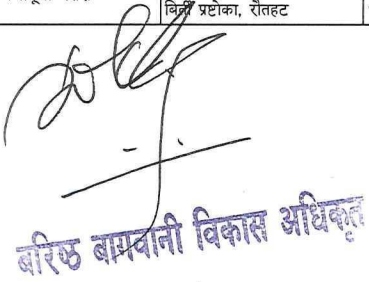 प्रष्टोका, रौतहट
बरिष्ठ बागवानी विकास अधिकृत